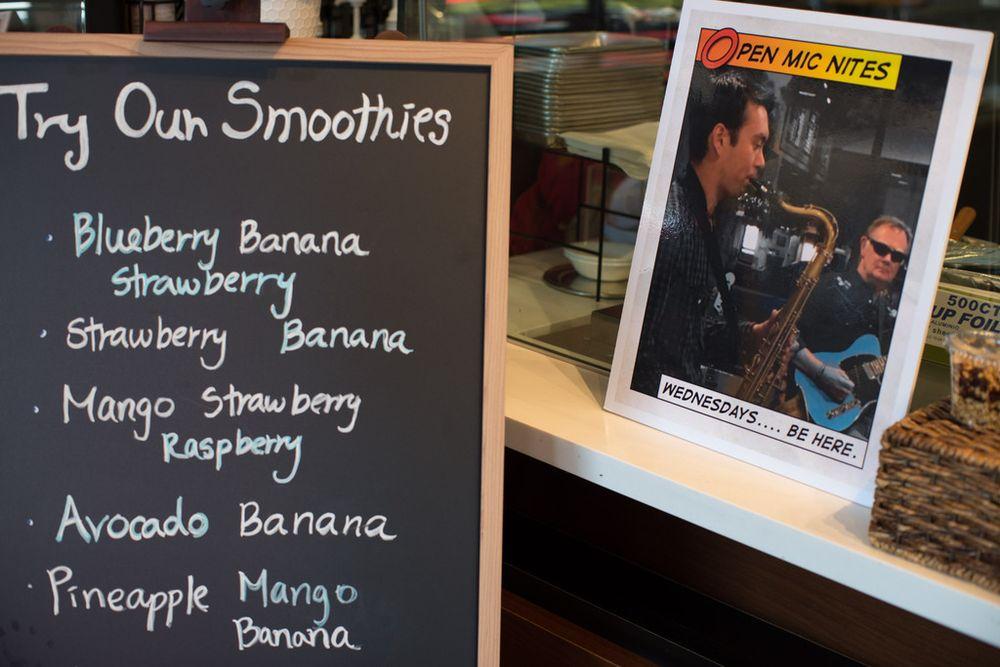 Try Our Smoothies
Blueberry Banana
Strawberry
Strawberry Banana
Mango Strawberry
Raspberry
Avocado Banana
Pineapple Mango
Banana
OPEN MIC NITES
WEDNESDAYS.... BE HERE.
500CT
UP FOIL